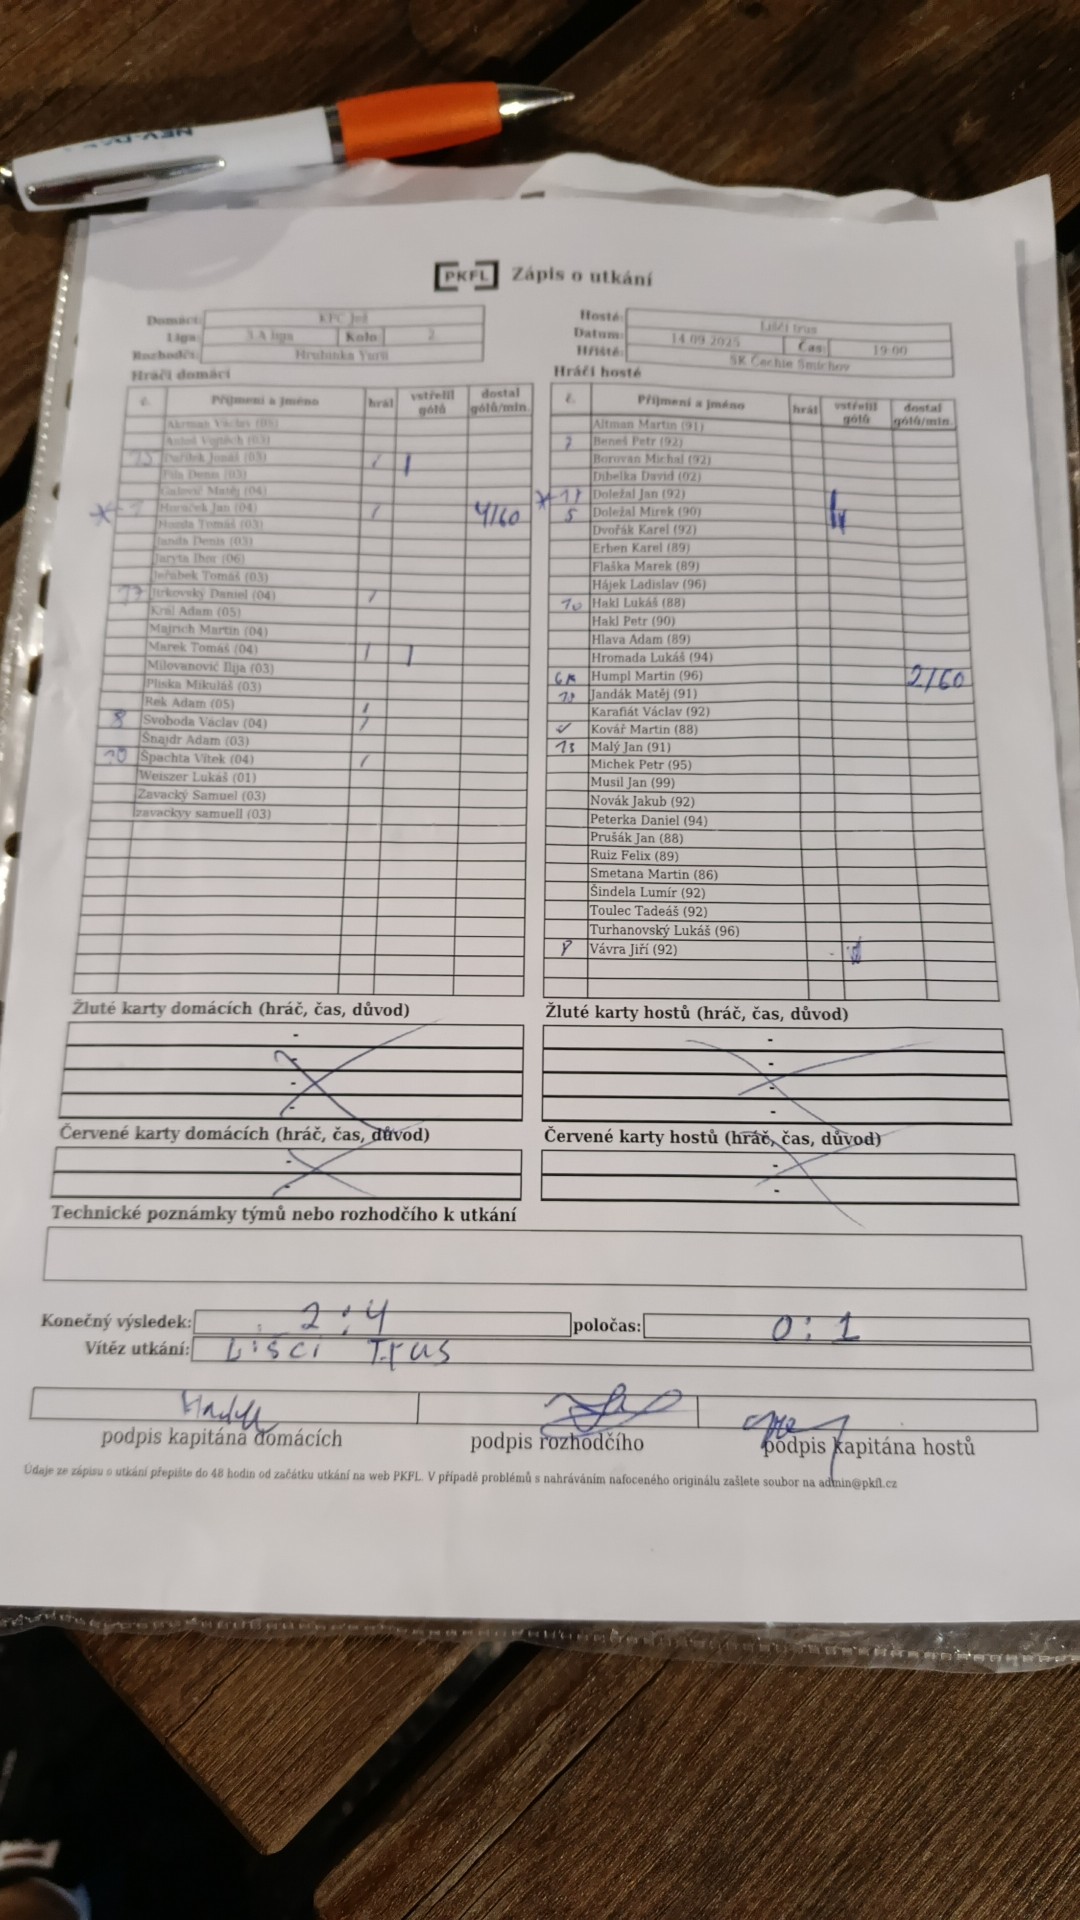 PKFL Zápis o utkání
Domácí: KFC Jež
Liga: 3.A liga Kolo: 2.
Rozhodčí: Hrubinka Yurii
Hosté: Liščí trus
Datum: 14.09.2025 Čas: 19:00
Hřiště: SK Čechie Smíchov
Hráči domácí
č. Příjmení a jméno hrál vstřelil gólů dostal gólů/min.
Jonáš (03) / 1
Fila Denis (03)
Matěj (04)
Horáček Jan (04) / 4/60
Tomáš (03)
Janda Denis (03)
Ihor (06)
Jeřábek Tomáš (03)
77 Jirkovský Daniel (04) /
Král Adam (05)
Majrich Martin (04)
Marek Tomáš (04) / 1
Milovanović Ilija (03)
Pliska Mikuláš (03)
Rek Adam (05) /
8 Svoboda Václav (04) /
Šnajdr Adam (03)
Špachta Vítek (04) /
Weiszer Lukáš (01)
Zavacký Samuel (03)
zavackyy samuell (03)
Hráči hosté
č. Příjmení a jméno hrál vstřelil gólů dostal gólů/min.
Altman Martin (91)
7 Beneš Petr (92)
Borovan Michal (92)
Dibelka David (02)
Doležal Jan (92)
5 Doležal Mirek (90)
Dvořák Karel (92)
Erben Karel (89)
Flaška Marek (89)
Hájek Ladislav (96)
10 Hakl Lukáš (88)
Hakl Petr (90)
Hlava Adam (89)
Hromada Lukáš (94)
Humpl Martin (96) 2/60
Jandák Matěj (91)
Karafiát Václav (92)
Kovář Martin (88)
13 Malý Jan (91)
Michek Petr (95)
Musil Jan (99)
Novák Jakub (92)
Peterka Daniel (94)
Prušák Jan (88)
Ruiz Felix (89)
Smetana Martin (86)
Šindela Lumír (92)
Toulec Tadeáš (92)
Turhanovský Lukáš (96)
Vávra Jiří (92)
Žluté karty domácích (hráč, čas, důvod)
-
-
-
-
Žluté karty hostů (hráč, čas, důvod)
-
-
-
-
Červené karty domácích (hráč, čas, důvod)
-
-
Červené karty hostů (hráč, čas, důvod)
-
-
Technické poznámky týmů nebo rozhodčího k utkání
Konečný výsledek: 2:4 poločas: 0:1
Vítěz utkání: Lišci Trus
podpis kapitána domácích podpis rozhodčího podpis kapitána hostů
Údaje ze zápisu o utkání přepište do 48 hodin od začátku utkání na web PKFL. V případě problémů s nahráváním nafoceného originálu zašlete soubor na admin@pkfl.cz